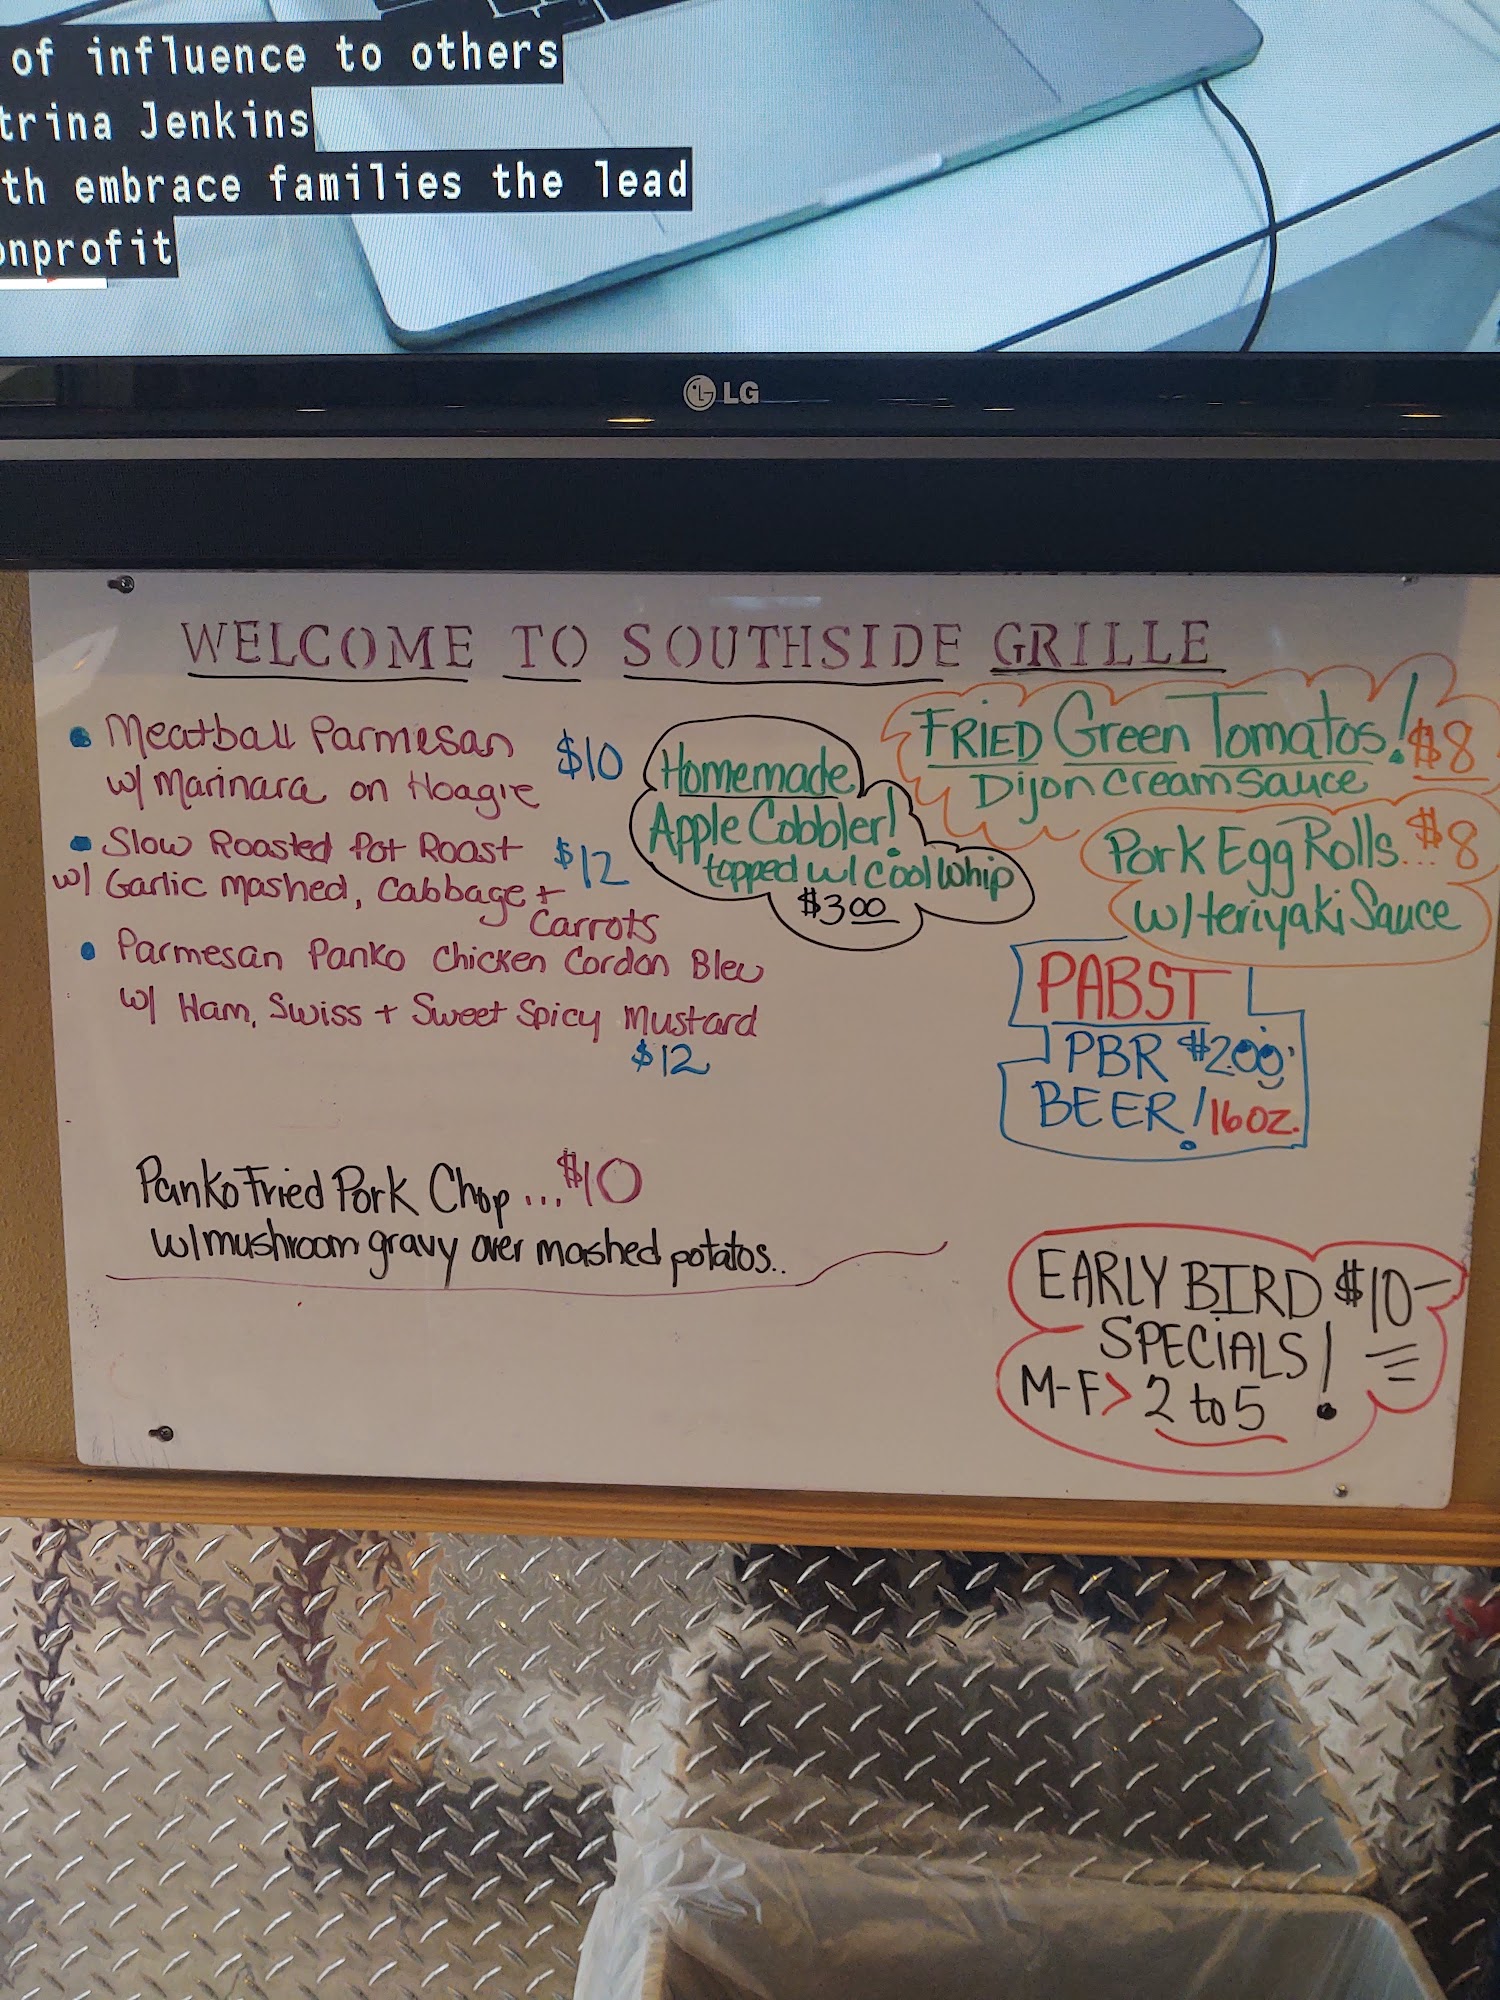 of influence to others
trina Jenkins
th embrace families the lead
onprofit
LG
WELCOME TO SOUTHSIDE GRILLE
• Meatball Parmesan $10
w/ Marinara on Hoagie
• Slow Roasted Pot Roast $12
w/ Garlic mashed, Cabbage +
Carrots
• Parmesan Panko Chicken Cordon Bleu
w/ Ham, Swiss + Sweet Spicy Mustard
$12
Panko Fried Pork Chop ... $10
w/ mushroom gravy over mashed potatos..
Homemade
Apple Cobbler!
topped w/ Cool Whip
$3 00
FRIED Green Tomatos! $8
Dijon Cream Sauce
Pork Egg Rolls... $8
w/ teriyaki Sauce
PABST
PBR $2.00
BEER! 16 OZ.
EARLY BIRD $10-
SPECiALS!
M-F> 2 to 5